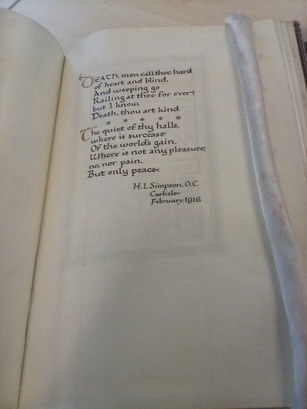 DEATH, men call thee hard
of heart and blind,
And weeping go
Railing at thee for ever;
but I know,
Death, thou art kind.
* * * * *
The quiet of thy halls,
where is surcease
Of the world's gain,
Where is not any pleasure,
no, nor pain,
But only peace.
H. L. Simpson, O.C.
Carlisle
February, 1916